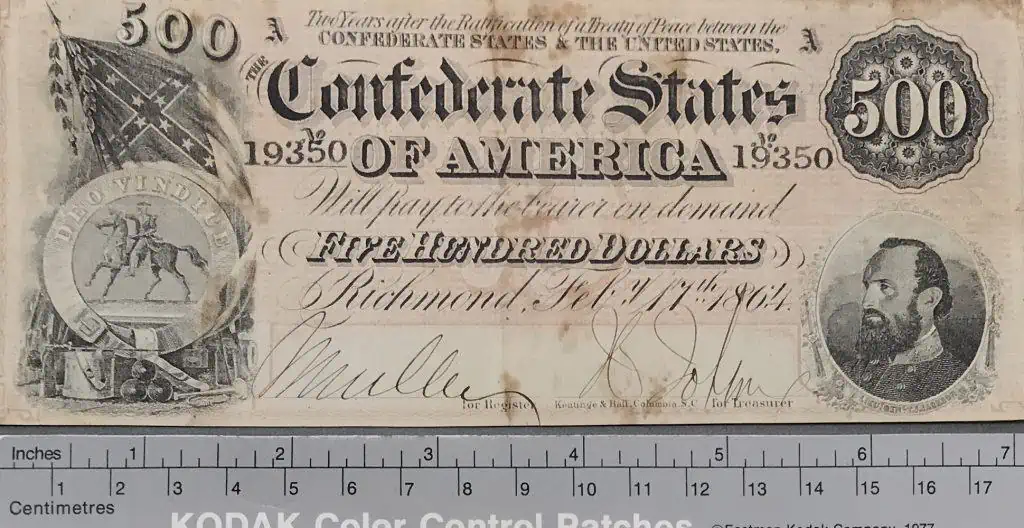 500
A
Two Years after the Ratification of a Treaty of Peace between the
CONFEDERATE STATES & THE UNITED STATES,
A
500
THE
Confederate States
OF AMERICA
No 19350
No 19350
Will pay to the bearer on demand
FIVE HUNDRED DOLLARS
Richmond, Feby 17th 1864.
DEO VINDICE
for Register
Keatinge & Ball, Columbia, S.C.
for Treasurer
Inches 1 2 3 4 5 6 7
1 2 3 4 5 6 7 8 9 10 11 12 13 14 15 16 17
Centimetres
KODAK Color Control Patches
©Eastman Kodak Company, 1977